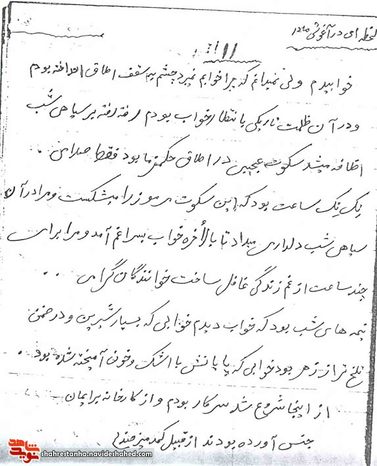 لحظه‌ای در آغوش مادر
خوابیدم ولی نمیدانم که چرا خوابم نمیبرد چشم به سقف اطاق انداخته بودم
و در آن ظلمت تاریکی با انتظار خواب بودم رفته رفته بر سیاهی شب
اضافه میشد سکوت عجیبی در اطاق حکمفرما بود فقط صدای ..
تیک تیک ساعت بود که این سکوت مرموز را میشکست و مرا در آن
سیاهی شب دلداری میداد تا بالاخره خواب بسراغم آمد و مرا برای
چند ساعت از غم زندگی غافل ساخت خوانندگان گرامی ..
نیمه های شب بود که خواب دیدم خوابی که بسیار شیرین و در ضمن
تلخ تر از زهر بود خوابی که پایانش با اشک و خون آمیخته شده بود ..
از اینجا شروع شد سر کار بودم و از کارخانه برایمان
جنس آورده بودند از قبیل کمد میز صندلی
shahrestanha.navideshahed.com